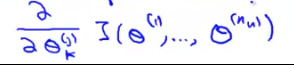 ∂/∂θ_k^(j) J(θ^(1), ..., θ^(n_u))